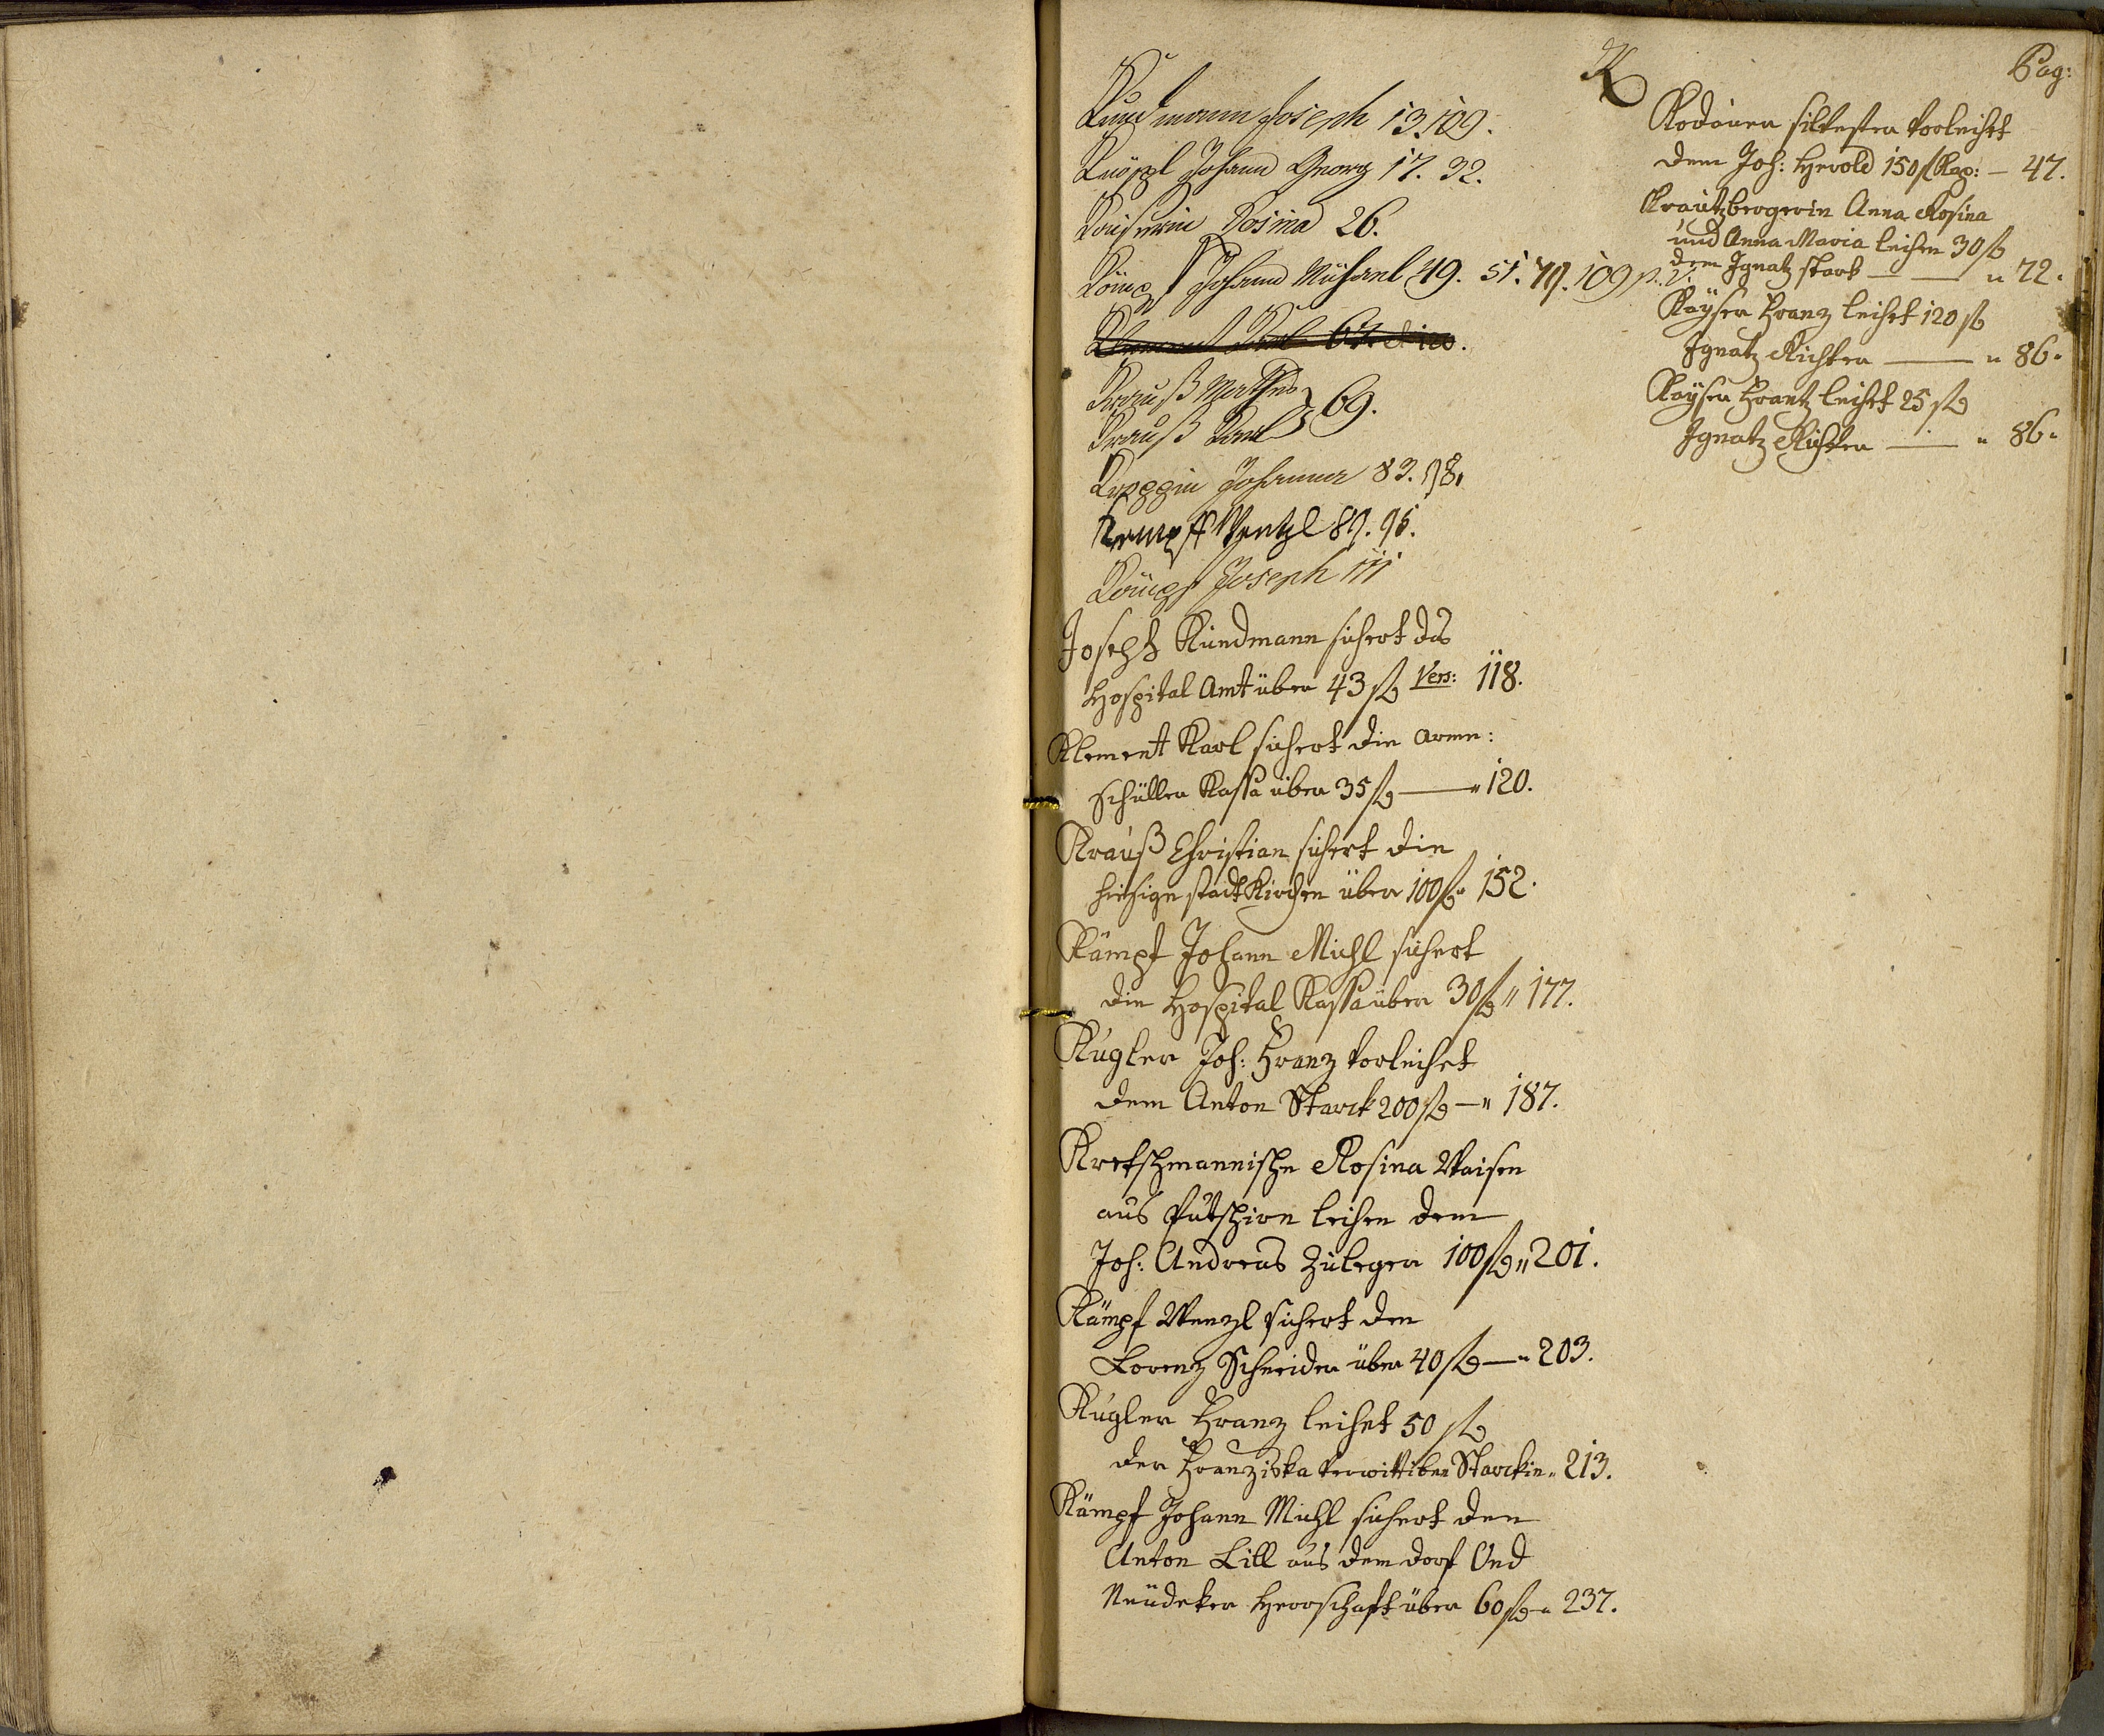 K
Pag:
Kundmann Joseph 13. 109.
Knöpl Johann Georg 17. 32.
Kaiserin Rosina 26.
Johann Michael 49. 51. 79. 109
Krauß Mathes
Krauß Karl } 69.
Johanna 83. 98.
Kempff Wentzl 89. 95.
Joseph 111
Joseph Kundmann sichert das
Hospital Amt über 43 f Vers: 118.
Klement Karl sichert die arme:
Schüller Kassa über 35 f — " 120.
Krauß Christian sichert die
hiesige stadt Kirchen über 100 f " 152.
Kämpf Johann Michl sichert
die Hospital Kassa über 30 f " 177.
Kugler Joh: Franz verleihet
dem Anton Starck 200 f — " 187.
Kretschmannische Rosina Waisen
aus Putschirn leihen dem
Joh: Andreas Zuleger 100 f " 201.
Kämpf Wenzl sichert den
Lorenz Schneider über 40 f — " 203.
Kugler Franz leihet 50 f
der Franziska verwittiben Starckin " 213.
Kämpf Johann Michl sichert den
Anton Lill aus dem dorf Öed
Neudeker Herrschaft über 60 f " 237.
Silvester verleihet
dem Joh: Herold 150 f Kap: — 47.
Krautzbergerin Anna Rosina
und Anna Maria leihen 30 f
dem Ignatz stark — " 72.
Kayser Franz leihet 120 f
Ignatz Richter — " 86.
Kayser Frantz leihet 25 f
Ignatz Richter — " 86.